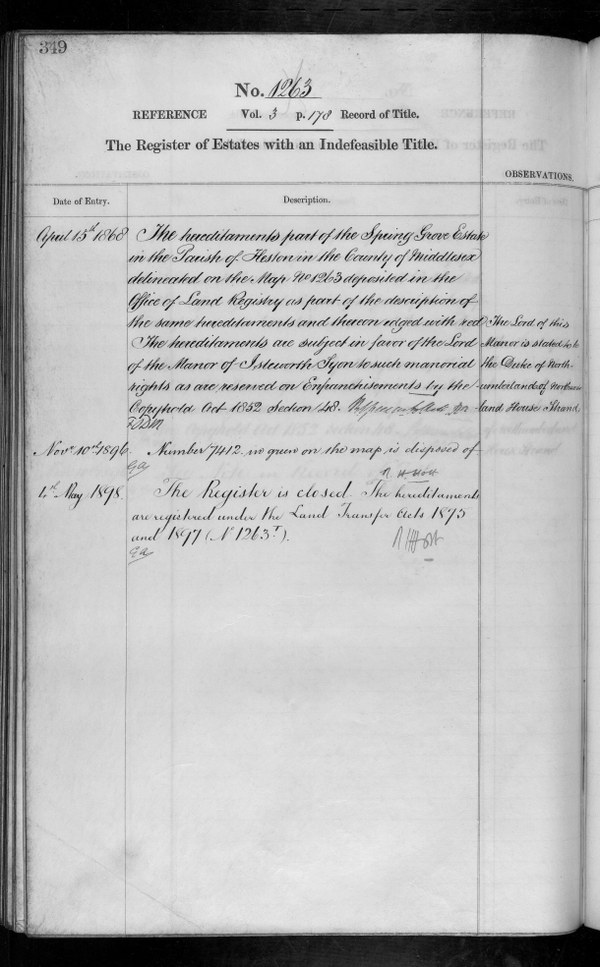 349
No. 1263
REFERENCE Vol. 3 p. 178 Record of Title.
The Register of Estates with an Indefeasible Title.
OBSERVATIONS.
Date of Entry.
Description.
April 15th 1868
The hereditaments part of the Spring Grove Estate
in the Parish of Heston in the County of Middlesex
delineated on the Map No 1263 deposited in the
Office of Land Registry as part of the description of
the same hereditaments and thereon edged with red
The hereditaments are subject in favor of the Lord
of the Manor of Isleworth Syon to such manorial
rights as are reserved on Enfranchisements by the
Copyhold Act 1852 Section 48.
The Lord of this
Manor is stated to be
the Duke of North-
umberland of Northum-
-land House Strand
Novr 10th 1896
Number 7412 in green on the map is disposed of
R H Holt
May 1898.
The Register is closed. The hereditaments
are registered under the Land Transfer Acts 1875
and 1897 (No 1263T).
R H Holt